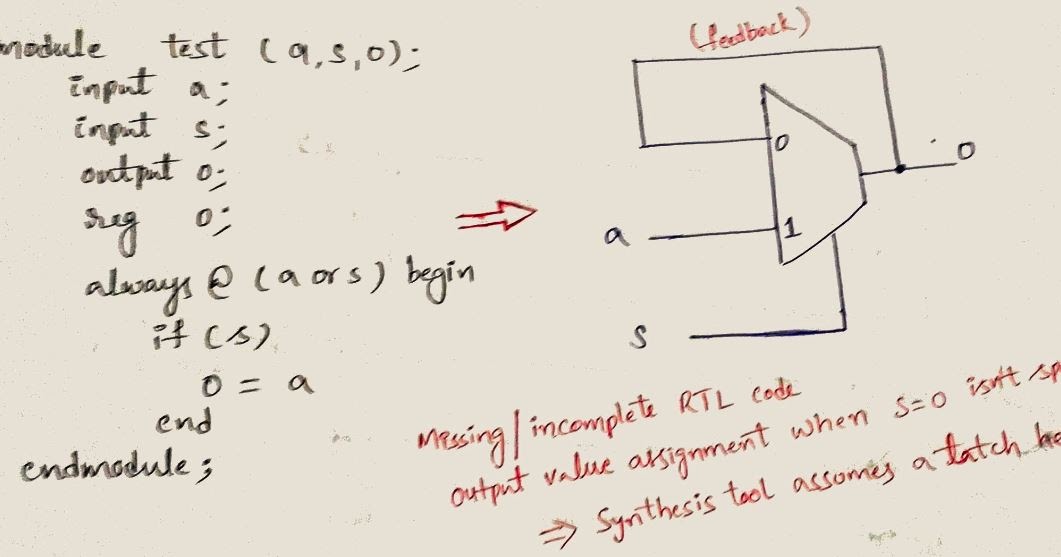 module test (a,s,o);
input a;
input s;
output o;
reg o;
always @ (a or s) begin
if (s)
o = a
end
endmodule;
(feedback)
0
o
a
1
s
Missing/incomplete RTL code
output value assignment when s=0 isn't
⇒ Synthesis tool assumes a latch